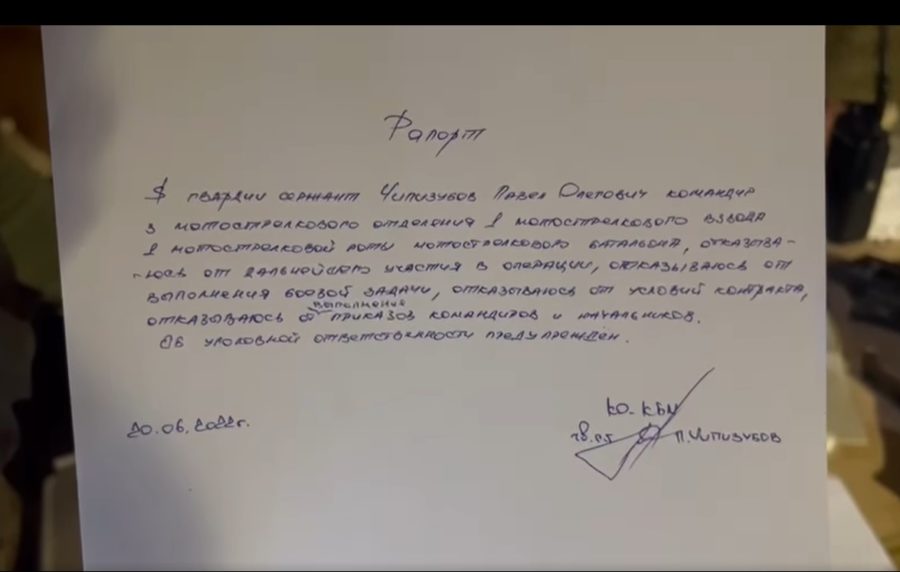 Рапорт
Я гвардии сержант Чипизубов Павел Олегович командир
3 мотострелкового отделения 1 мотострелкового взвода
1 мотострелковой роты мотострелкового батальона, отказыва-
-юсь от дальнейшего участия в операции, отказываюсь от
выполнения боевой задачи, отказываюсь от условий контракта,
выполнение
отказываюсь приказов командиров и начальников.
Об уголовной ответственности предупрежден.
КО-КБМ
20.06.2022г.
гв. с-т П.Чипизубов